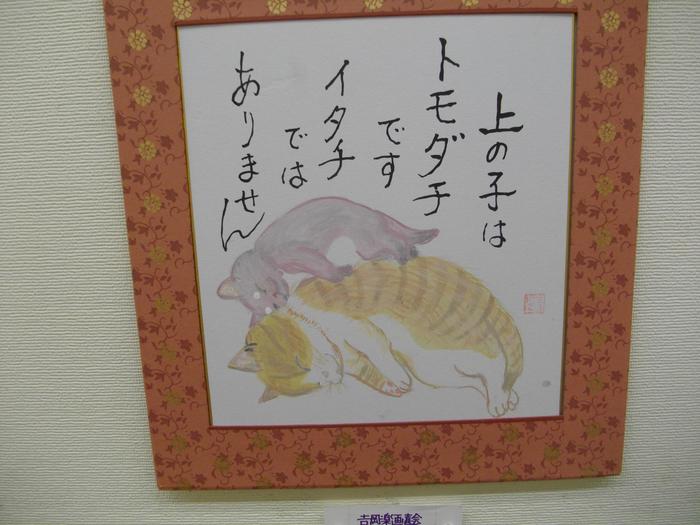 上の子は
トモダチ
です
イタチ
では
ありません
吉岡楽画真会